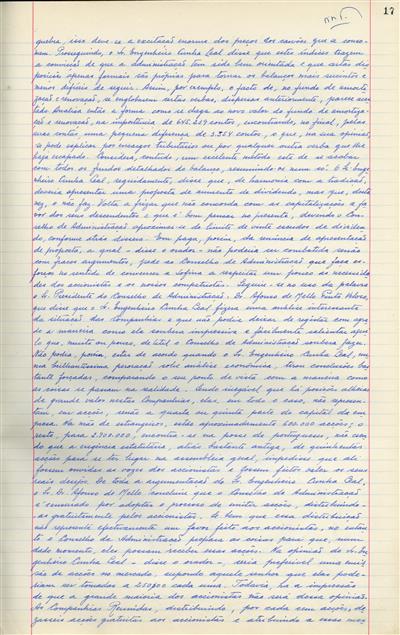 17
quebra, isso deve-se à oscilação enorme dos preços dos carvões que a conso-
mem. Prosseguindo, o Sr. Engenheiro Cunha Leal disse que estes índices trazem
a convicção de que a administração tem sido bem orientada e que certas dis-
posições apenas formais são próprias para tornar os balanços mais sucintos e
menos difíceis de seguir. Assim, por exemplo, o facto de, no fundo de amorti-
zação e renovação, se englobarem várias verbas, dispersas anteriormente, parece acer-
tado. Analisa então a forma como se chega ao novo valor do fundo de amortiza-
ção e renovação, na importância de 645.209 contos, encontrando, no final, pelas
suas contas, uma pequenina diferença de 3.364 contos, o que, na sua opinião,
se pode explicar por encargos tributários ou por qualquer outra verba que lhe
haja escapado. Considera, contudo, um excelente método este de se acabar
com todos os fundos detalhados do balanço, resumindo-os num só. O Sr. Enge-
nheiro Cunha Leal, seguidamente, disse que, de harmonia com o sindical,
deveria apresentar uma proposta de aumento de dividendo, mas que, desta
vez, o não faz. Volta a frizar que não concorda com as capitalizações a fa-
vor dos seus descendentes e que é bom pensar no presente, devendo o Con-
selho de Administração aproximar-se do limite de vinte escudos de dividen-
do, conforme atrás dissera. Sem paga, porém, da minúcia de apresentação
de proposta, a qual - disse o orador - não poderia ser combatida senão
com fracos argumentos, pede ao Conselho de Administração que faça es-
forços no sentido de convencer a Sofina a respeitar um pouco as necessida-
des dos accionistas e os nossos compatriotas. Seguiu-se no uso da palavra
o Sr. Presidente do Conselho de Administração, Dr. Afonso de Mello Pinto Veloso,
que disse que o Sr. Engenheiro Cunha Leal fizera uma análise interessante
da situação das Companhias e que não podia deixar de registar com agra-
do a maneira como ela soubera impressiva e facilmente salientar aqui-
lo que, muito ou pouco, de útil o Conselho de Administração soubera fazer.
Não podia, porém, estar de acordo quando o Sr. Engenheiro Cunha Leal, nu-
ma brilhantíssima peroração sobre análise económica, tirou conclusões bas-
tante forçadas, comparando o seu ponto de vista com a maneira como
as coisas se passam na realidade. Sendo inegável que há posições alheias
de grande valor nestas Companhias, elas, em todo o caso, não represen-
tam, em acções, senão a quarta ou quinta parte do capital da em-
presa. Na mão de estrangeiros, estão aproximadamente 600.000 acções; o
resto, para 2.700.000, encontra-se na posse de portugueses, sem sem-
do que a exigência estatutária, aliás bastante antiga, de quinhentas
acções para se ter lugar na assembleia geral, impedisse que ali
fossem ouvidas as vozes dos accionistas e fossem feitos valer os seus
reais desejos. De toda a argumentação do Sr. Engenheiro Cunha Leal,
o Sr. Dr. Afonso de Mello concluiu que o Conselho de Administração
é censurado por adoptar o processo de emitir acções, distribuindo-
-as gratuitamente pelos accionistas. É bem que essa distribuição
não represente efectivamente um favor feito aos accionistas, no entan-
to o Conselho de Administração prepara as coisas para que, num
dado momento, eles possam receber essas acções. Na opinião do Sr. En-
genheiro Cunha Leal - disse o orador -, seria preferível uma emis-
são de acções no mercado, supondo aquele senhor que elas pode-
riam ser tomadas a 250$00 cada uma. Todavia, há a impressão
de que a grande maioria dos accionistas não será dessa opinião.
As Companhias Reunidas, distribuindo, por cada cem acções, de-
zasseis acções gratuitas aos accionistas e atribuindo a essas no-